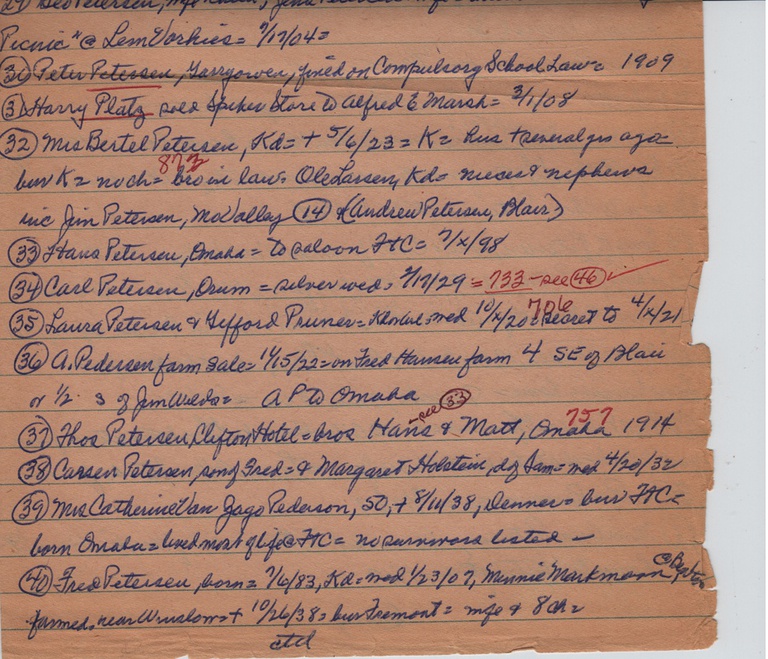 Picnic" @ Lem Vorhies = 9/17/04 =
(30) Peter Petersen, Garryowen, fined on Compulsory School Law = 1909
(31) Harry Platz sold Spiker Store to Alfred E Marsh = 3/1/08
(32) Mrs Bertel Petersen, Kd = + 5/6/23 = K = hus + several yrs ago =
873
bur K = no ch = bro in law = Ole Larsen, Kd = nieces & nephews
inc Jim Petersen, Mo Valley (14) (Andrew Petersen, Blair)
(33) Hans Petersen, Omaha = to saloon FtC = 7/x/98
(34) Carl Petersen, Orum = silver wed = 2/17/29 = 733 - see (46) ✓
706
(35) Laura Petersen & Gifford Pruner = med 10/x/20 = secret to 4/x/21
(36) A. Pedersen farm sale = 11/15/22 = on Fred Hansen farm 4 SE of Blair
or 1/2 S of Jim Weds = A P to Omaha
- see (33)
757
(37) Thos Petersen, Clifton Hotel = bros Hans & Matt, Omaha 1914
(38) Carsen Petersen, son of Fred = & Margaret Holstein, d of Sam = med 4/20/32
(39) Mrs Catherine Van Jago Pederson, 50, + 8/11/38, Denver = bur FtC =
born Omaha = lived most of life @ FtC = no survivors listed -
(40) Fred Petersen, born = 7/6/83, Kd = med 1/23/07, Minnie Markmann
farmed near Winslow = + 10/26/38 = bur Fremont = wife & 8 ch =
ctd